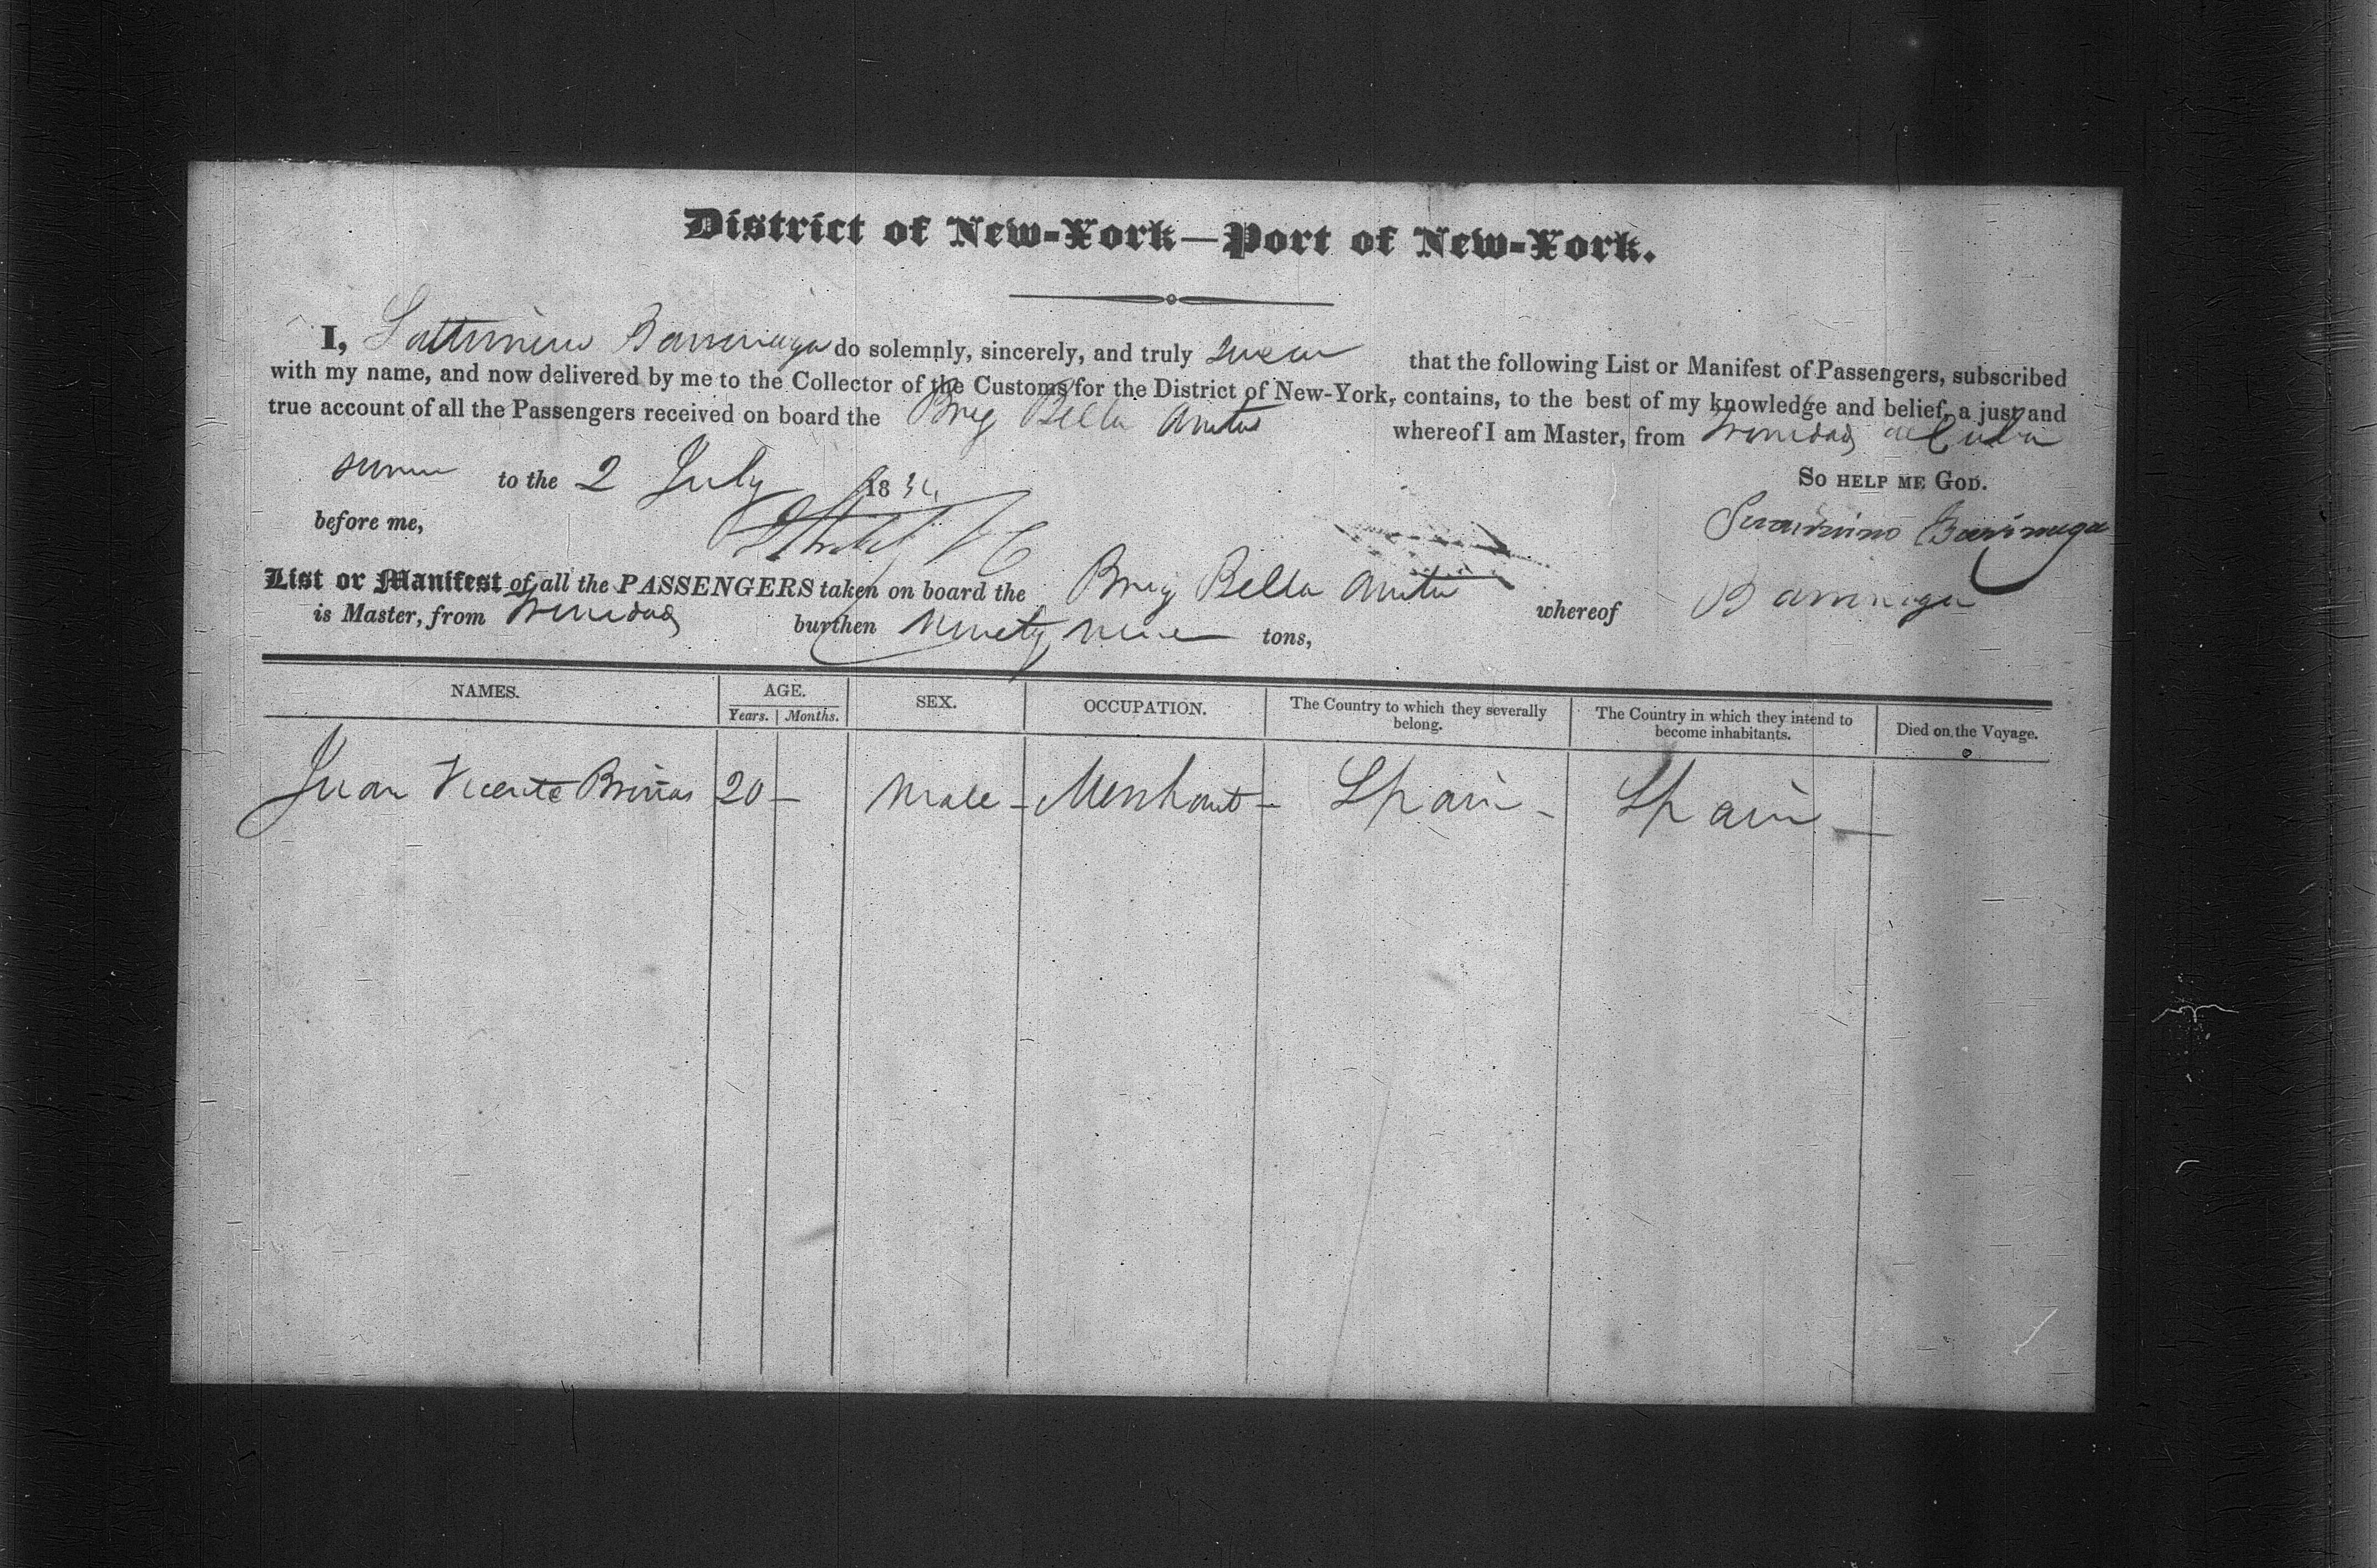 District of New-York—Port of New-York.
I, Barinaga do solemnly, sincerely, and truly swear that the following List or Manifest of Passengers, subscribed
with my name, and now delivered by me to the Collector of the Customs for the District of New-York, contains, to the best of my knowledge and belief, a just and
true account of all the Passengers received on board the Brig Bella Anita whereof I am Master, from Trinidad de Cuba
sworn to the 2 July 183
So HELP ME GOD.
before me,
Barinaga
List or Manifest of all the PASSENGERS taken on board the Brig Bella Anita whereof Barinaga
is Master, from Trinidad burthen Ninety nine tons,
NAMES. AGE. SEX. OCCUPATION. The Country to which they severally belong. The Country in which they intend to become inhabitants. Died on the Voyage.
Years. Months.
Juan Vicente Briñas 20 — Male - Merchant - Spain - Spain —